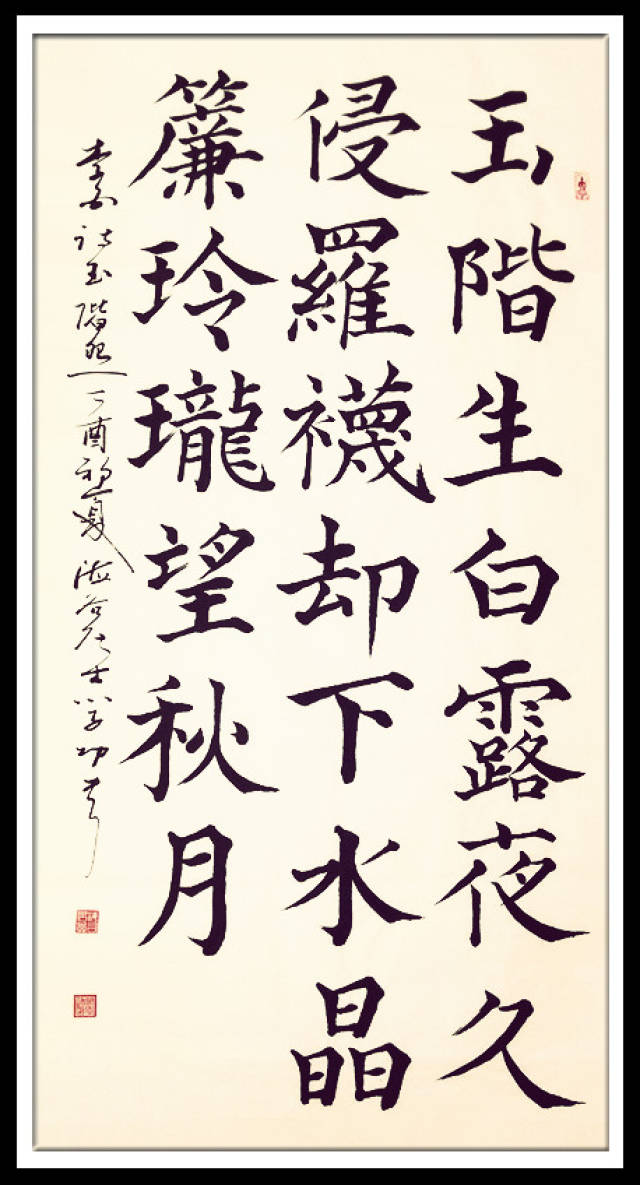 玉階生白露夜久
侵羅襪却下水晶
簾玲瓏望秋月
李白詩玉階怨丁酉初夏居士書